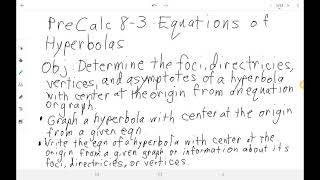 PreCalc 8-3: Equations of
Hyperbolas
Obj: Determine the foci, directricies,
vertices, and asymptotes of a hyperbola
with center at the origin from an equation
or graph.
• Graph a hyperbola with center at the origin
from a given eqn
• Write the eqn of a hyperbola with center at the
origin from a given graph or information about its
foci, directricies, or vertices.